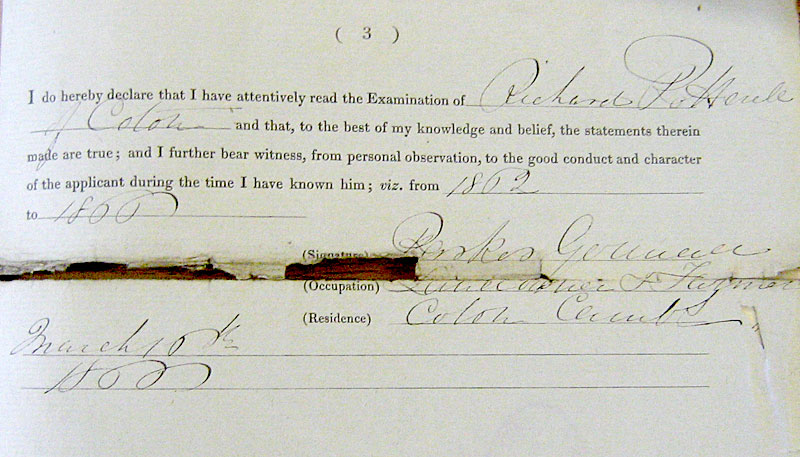 ( 3 )
I do hereby declare that I have attentively read the Examination of Richard
of and that, to the best of my knowledge and belief, the statements therein
made are true; and I further bear witness, from personal observation, to the good conduct and character
of the applicant during the time I have known him; viz. from 1862
to 1866
(Signature)
(Occupation) & Farmer
(Residence) Cambs
March 10th
1866